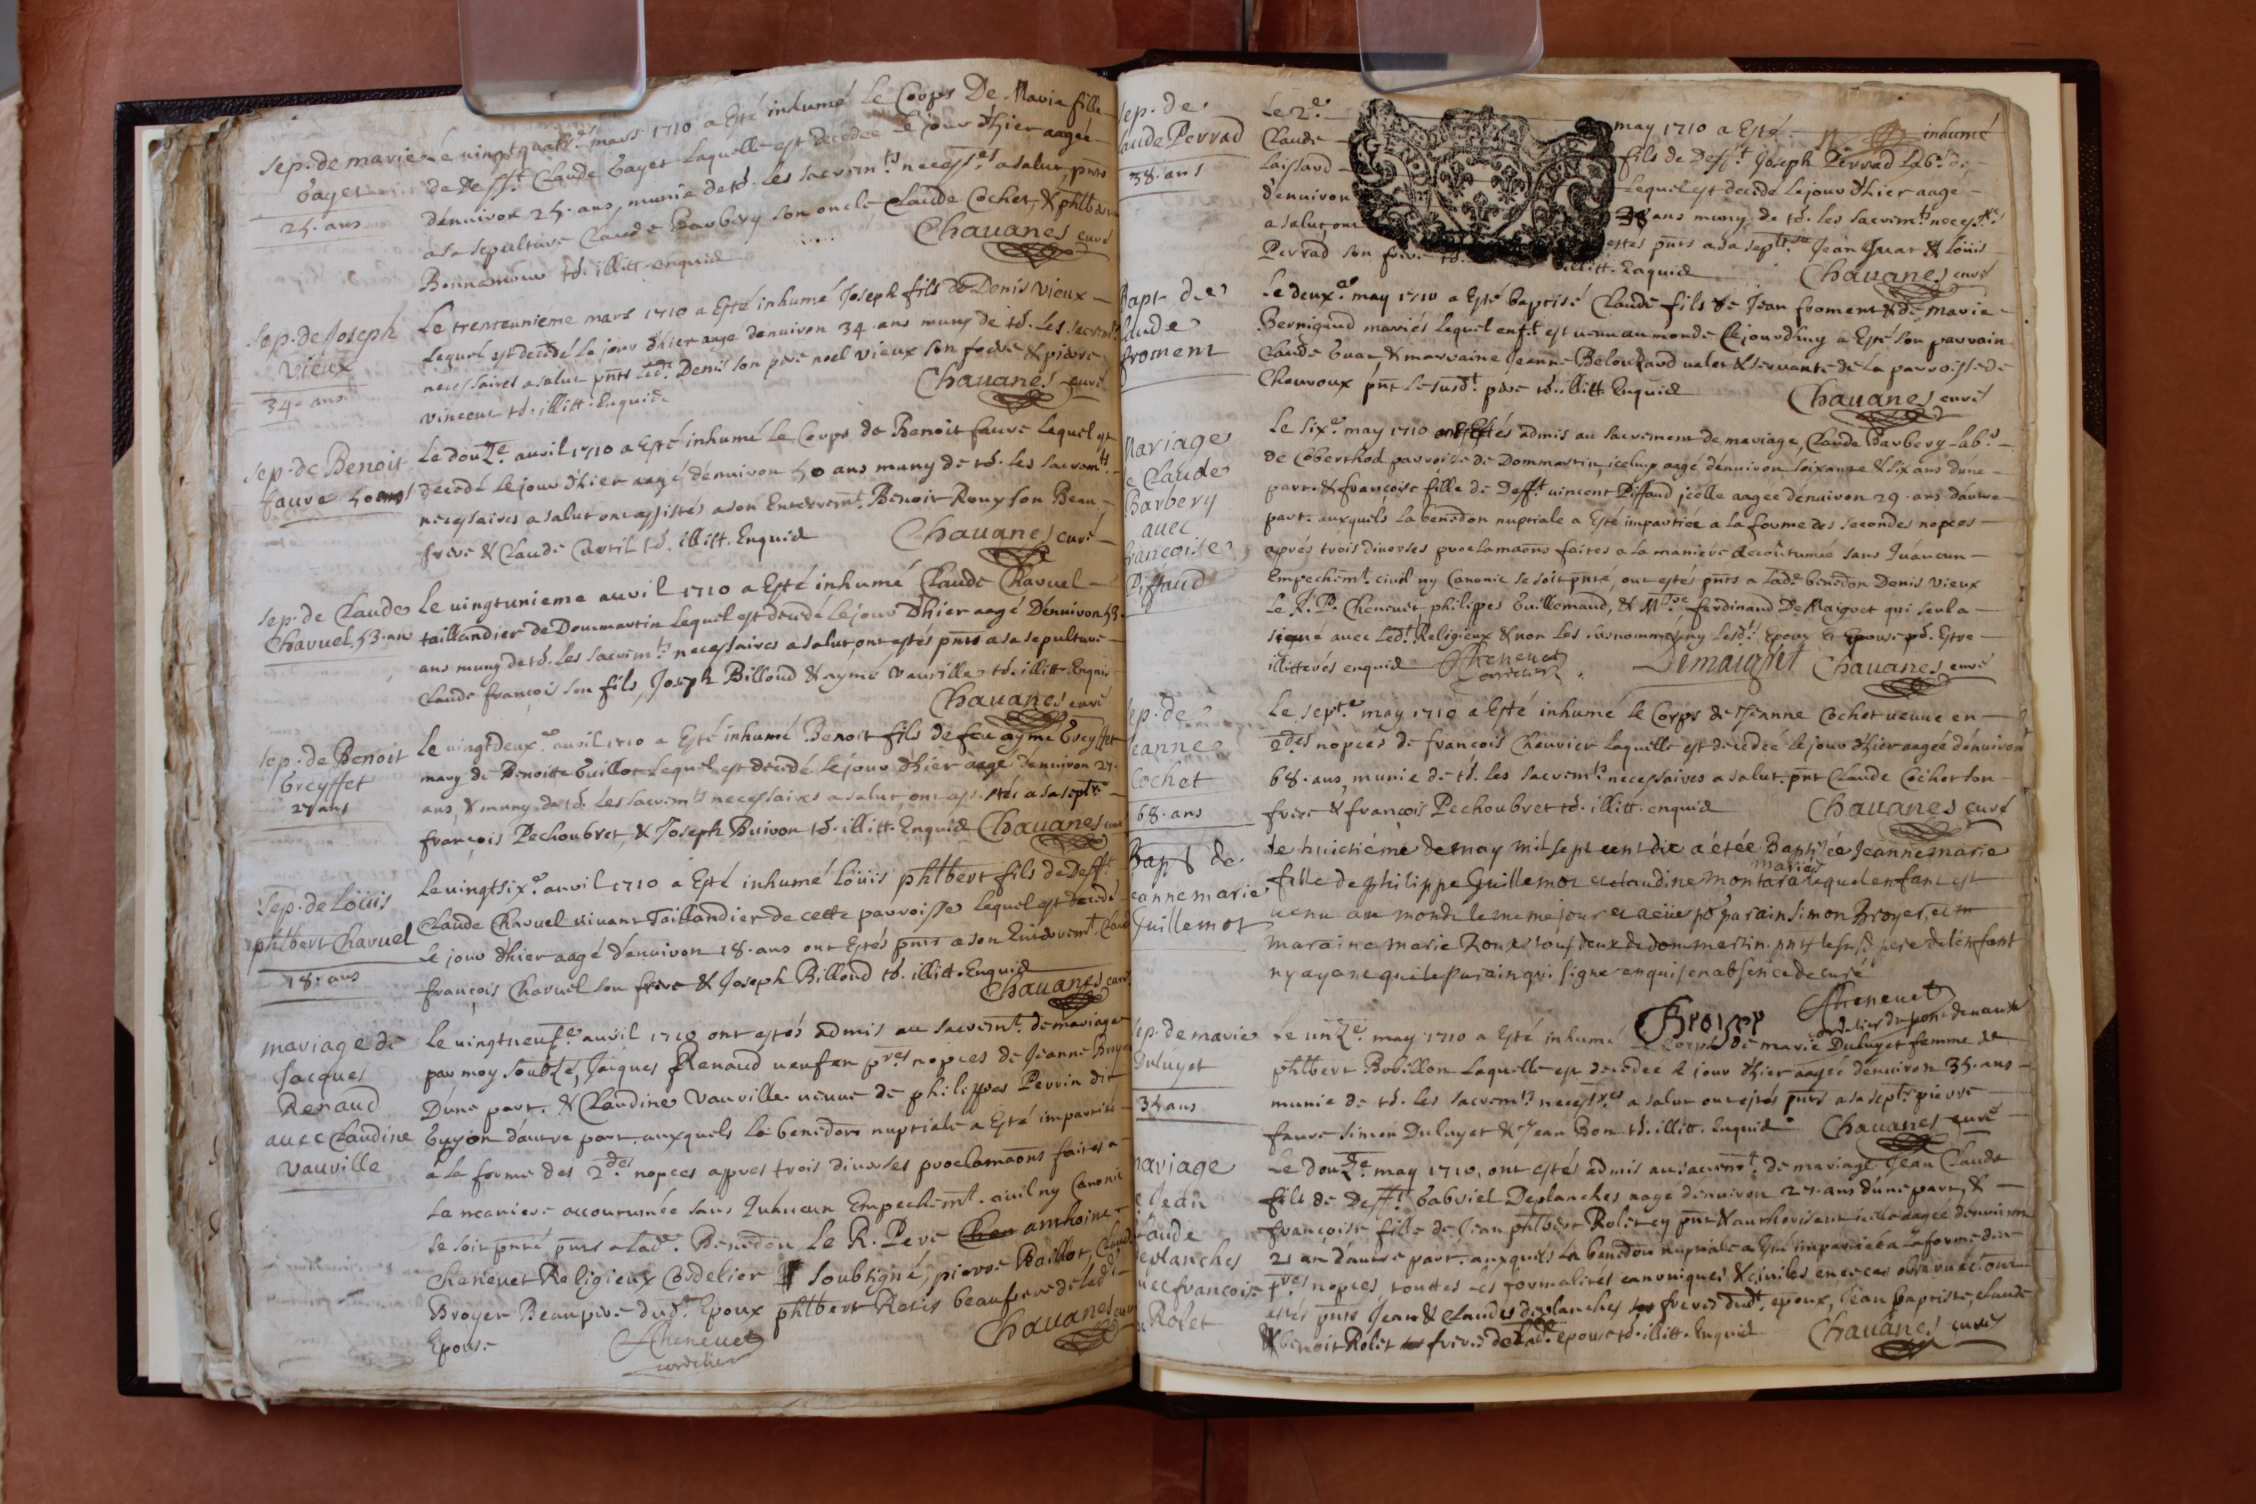 sep. de marie
Gayet
25. ans
Le vingtquatre. mars 1710 a Esté inhumé Le Corps De Marie fille
de Deff.t Claude Gayet Laquelle est decedée Le jour d'hier aagée
dénuiron 25. ans, munie de td. les sacrem.ts necess.es a salut, pnts
a sa sepulture Claude Barbery son oncle Claude Cochet, & phlbert
Bonnamour td. illitt. enquid
Chauanes curé
Sep. de Joseph
Vieux
34. ans
Le trenteunieme mars 1710 a Esté inhumé Joseph fils de Denis Vieux
Lequel est decedé Le jour d'hier aage denuiron 34. ans muny de td. Les sacrem.ts
necessaires a salut pnts led.t Denis son pere noel vieux son frere & pierre
vincent td. illitt. Enquid
Chauanes curé
Sep. de Benoit
faure 50 ans
Le douze.e auril 1710 a Esté inhumé Le Corps de Benoit faure Lequel est
decedé Le jour d'hier aagé dénuiron 50 ans muny de td. les sacrem.ts
necessaires a salut ont assistés a son Enterrem.t Benoit Rouy son Beau
frere & Claude td. illitt. Enquid
Chauanes curé
Sep. de Claude
Charuel. 53. ans
Le vingtunieme auril 1710 a Esté inhumé Claude Charuel
taillandier de Dommartin Lequel est decedé Le jour d'hier aagé Dénuiron 53.
ans muny de td. Les sacrem.ts necessaires a salut, ont estés pnts a sa sepulture
Claude françois son fils, Joseph Billoud & aymé Vauuille td. illitt. Enquis
Chauanes curé
Sep. de Benoit
Greyffet
27 ans
Le vingtdeux.e auril 1710 a Esté inhumé Benoit fils de feu aymé Greyffet
mary de Benoitte Guillot Lequel est decedé Le jour d'hier aagé dénuiron 27.
ans, & muny de td. Les sacrem.ts necessaires a salut, ont assistés a sa sept.re
françois Pechoubret, & Joseph Buiron td. illitt. Enquid Chauanes curé
Sep. de Loüis
phlbert Charuel
18. ans
Le vingtsix.e auril 1710 a Esté inhumé Loüis phlbert fils de Deff.t
Claude Charuel viuant Taillandier de cette parroisse Lequel est decedé
le jour d'hier aagé dénuiron 18. ans ont Estés pnts a son Enterrem.t Claude
françois Charuel son frere & Joseph Billoud td. illitt. Enquid
Chauanes curé
mariage de
Jacques
Renaud
auec Claudine
Vauuille
Le vingtneuf.e auril 1710 ont estés admis au sacrem.t de mariage
par moy soubz.é, Jacques Renaud veuf en p.res nopces de Jeanne Broyer
D'une part. & Claudine Vauuille veuue de philippes Perrin dit
Guyon d'autre part. auxquels La benedon nuptiale a Esté impartie
a la forme des 2.des nopces appres trois diuerses proclamaons faites a
la maniere accoutumée sans Qu'aucun Empechem.t ciuil ny Canonic
se soit pnté pnts a Lad.e Benedon Le R. Pere anthoine
Cheneuet Religieux Cordelier soubsigné, pierre Baillot, Claude
Broyer Beaupere dud.t Epoux phlbert Retis beaufrere de lad.e
Epouse
Cheneuet
cordelier
Chauanes curé
sep. de
laude Perrad
38. ans
Le 2.e may 1710 a Esté inhumé
Claude fils de Deff.t Joseph Perrad Lab.r de
Laissard Lequel est decedé Le jour d'hier aagé
dénuiron 38 ans muny de td. les sacrem.ts necess.res
a salut, ont estés pnts a sa sept.re Jean Guat & Loüis
Perrad son frere td. illitt. Enquid
Chauanes curé
Bapt. de
laude
froment
Le deux.e may 1710 a Esté baptisé Claude fils de Jean froment & de Marie
Bernigaud mariés Lequel enf.t est venu au monde Cejourd'huy a Esté son parrain
Claude Guat & marraine Jeanne Beloussard valet & seruante de La parroisse de
Chouroux pnt Le susd.t pere td. illitt. Enquid
Chauanes curé
Mariage
e Claude
Barbery
auec
françoise
Piffaud
Le six.e may 1710 ont Estés admis au sacrement de mariage, Claude Barbery Lab.r
de Coberthod parroisse de Dommartin, iceluy aagé dénuiron soixante & six ans d'une
part. & françoise fille de Deff.t vincent Piffaud icelle aagee dénuiron 29. ans d'autre
part. auxquels La benedon nuptiale a Esté impartiée a la forme des secondes nopces
aprés trois diuerses proclamaons faites a la maniere accoûtumée sans Qu'aucun
Empechem.t ciuil ny Canonic se soit pnté, ont estés pnts a Lad.e benedon Denis Vieux
Le R. P. Cheneuet, philippes Guillemaud, & M.re ferdinand DeMaigret qui seul a
signé auec led.t Religieux & non Les susnommés ny Lesd.ts Epoux & Epouse pd. Estre
illitterés enquid
Cheneuet
Cordelier
Demaigret
Chauanes curé
sep. de
eanne
Cochet
68. ans
Le sept.e may 1710 a Esté inhumé le Corps de Jeanne Cochet veuue en
2.des nopces de françois Cheurier Laquelle est decedée Le jour d'hier aagée dénuiron
68. ans, munie de td. Les sacrem.ts necessaires a salut. pnt Claude Cochet son
frere & françois Pechoubret td. illitt. enquid
Chauanes curé
Bapt de
eanne marie
Guillemot
Le huictiéme de may mil sept cent dix a étée Baptisée Jeanne marie
fille de philippe Guillemot et claudine montara mariés lequel enfant est
venu au monde le mesme jour et a eüe p.r parain simon Broyer, et p.r
maraine marie Roux tous deux de dommartin. pnts le susd. pere de l'enfant
ny ayant que le parain qui signe enquis en absence de curé
Broyer
Cheneuet
cordelier du pont de vaux
ep. de marie
Duluyet
35 ans
Le unz.e may 1710 a Esté inhumé le Corps de marie Duluyet femme de
phlbert Bobillon Laquelle est decedée le jour d'hier aagée dénuiron 35. ans
munie de td. les sacrem.ts necess.res a salut ont estés pnts a sa sept.re pierre
faure simon Duluyet & Jean Bon td. illitt. Enquid
Chauanes curé
mariage
e Jean
laude
eplanches
uec françoise
Rolet
Le douz.e may 1710, ont estés admis au sacrem.t de mariage Jean Claude
fils de Deff.t Gabriel Deplanches aagé dénuiron 27. ans d'une part, &
françoise fille de Jean phlbert Rolet cy pnt & authorisant icelle aagée dénuiron
21 an d'autre part. auxquels La benedon nuptiale a Esté impartiée a La forme des
p.res nopces, touttes les formalités canoniques & ciuiles en ce cas obseruées. ont
estés pnts Jean & Claude deplanches freres dud.t epoux, Jean baptiste, claude
& benoit Rolet freres de Lad.e epouse td. illitt. Enquid
Chauanes curé